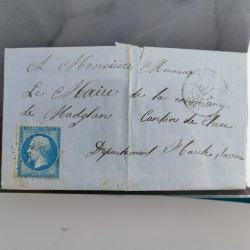 A Monsieur Monsieur
Le Maire de la commune
de Magland Canton de Cluse
Département Haute Savoie